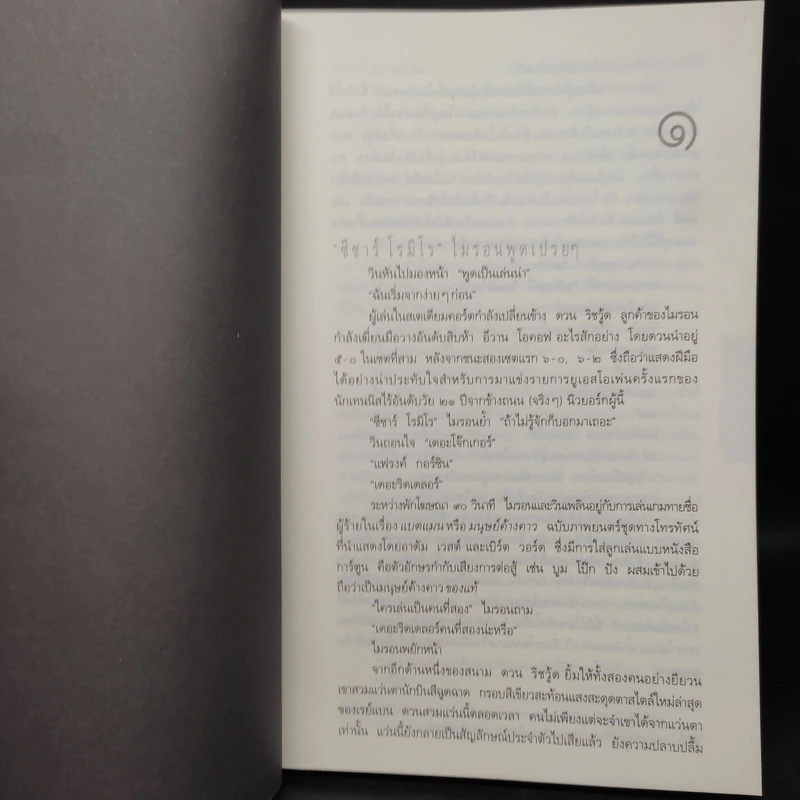 ๑
"ซีซาร์ โรมิโร" ไมรอนพูดเปรยๆ
วินหันไปมองหน้า "พูดเป็นเล่นน่า"
"ฉันเริ่มจากง่ายๆ ก่อน"
ผู้เล่นในสเตเดียมคอร์ตกำลังเปลี่ยนข้าง ดวน ริชวู้ด ลูกค้าของไมรอน
กำลังเฆี่ยนมือวางอันดับสิบห้า อีวาน โอคอฟ อะไรสักอย่าง โดยดวนนำอยู่
๕-๐ ในเซตที่สาม หลังจากชนะสองเซตแรก ๖-๐, ๖-๒ ซึ่งถือว่าแสดงฝีมือ
ได้อย่างน่าประทับใจสำหรับการมาแข่งรายการยูเอสโอเพ่นครั้งแรกของ
นักเทนนิสไร้อันดับวัย ๒๑ ปีจากข้างถนน (จริงๆ) นิวยอร์กผู้นี้
"ซีซาร์ โรมิโร" ไมรอนย้ำ "ถ้าไม่รู้จักก็บอกมาเถอะ"
วินถอนใจ "เดอะโจ๊กเกอร์"
"แฟรงค์ กอร์ชิน"
"เดอะริดเดลอร์"
ระหว่างพักโฆษณา ๙๐ วินาที ไมรอนและวินเพลินอยู่กับการเล่นเกมทายชื่อ
ผู้ร้ายในเรื่อง แบตแมน หรือ มนุษย์ค้างคาว ฉบับภาพยนตร์ชุดทางโทรทัศน์
ที่นำแสดงโดยอาดัม เวสต์ และเบิร์ต วอร์ด ซึ่งมีการใส่ลูกเล่นแบบหนังสือ
การ์ตูน คือตัวอักษรกำกับเสียงการต่อสู้ เช่น บูม โป๊ก ปัง ผสมเข้าไปด้วย
ถือว่าเป็นมนุษย์ค้างคาว ของแท้
"ใครเล่นเป็นคนที่สอง" ไมรอนถาม
"เดอะริดเดลอร์คนที่สองน่ะหรือ"
ไมรอนพยักหน้า
จากอีกด้านหนึ่งของสนาม ดวน ริชวู้ด ยิ้มให้ทั้งสองคนอย่างยียวน
เขาสวมแว่นตานักบินสีฉูดฉาด กรอบสีเขียวสะท้อนแสงสะดุดตาสไตล์ใหม่ล่าสุด
ของเรย์แบน ดวนสวมแว่นนี้ตลอดเวลา คนไม่เพียงแต่จะจำเขาได้จากแว่นตา
เท่านั้น แว่นนี้ยังกลายเป็นสัญลักษณ์ประจำตัวไปเสียแล้ว ยังความปลาบปลื้ม